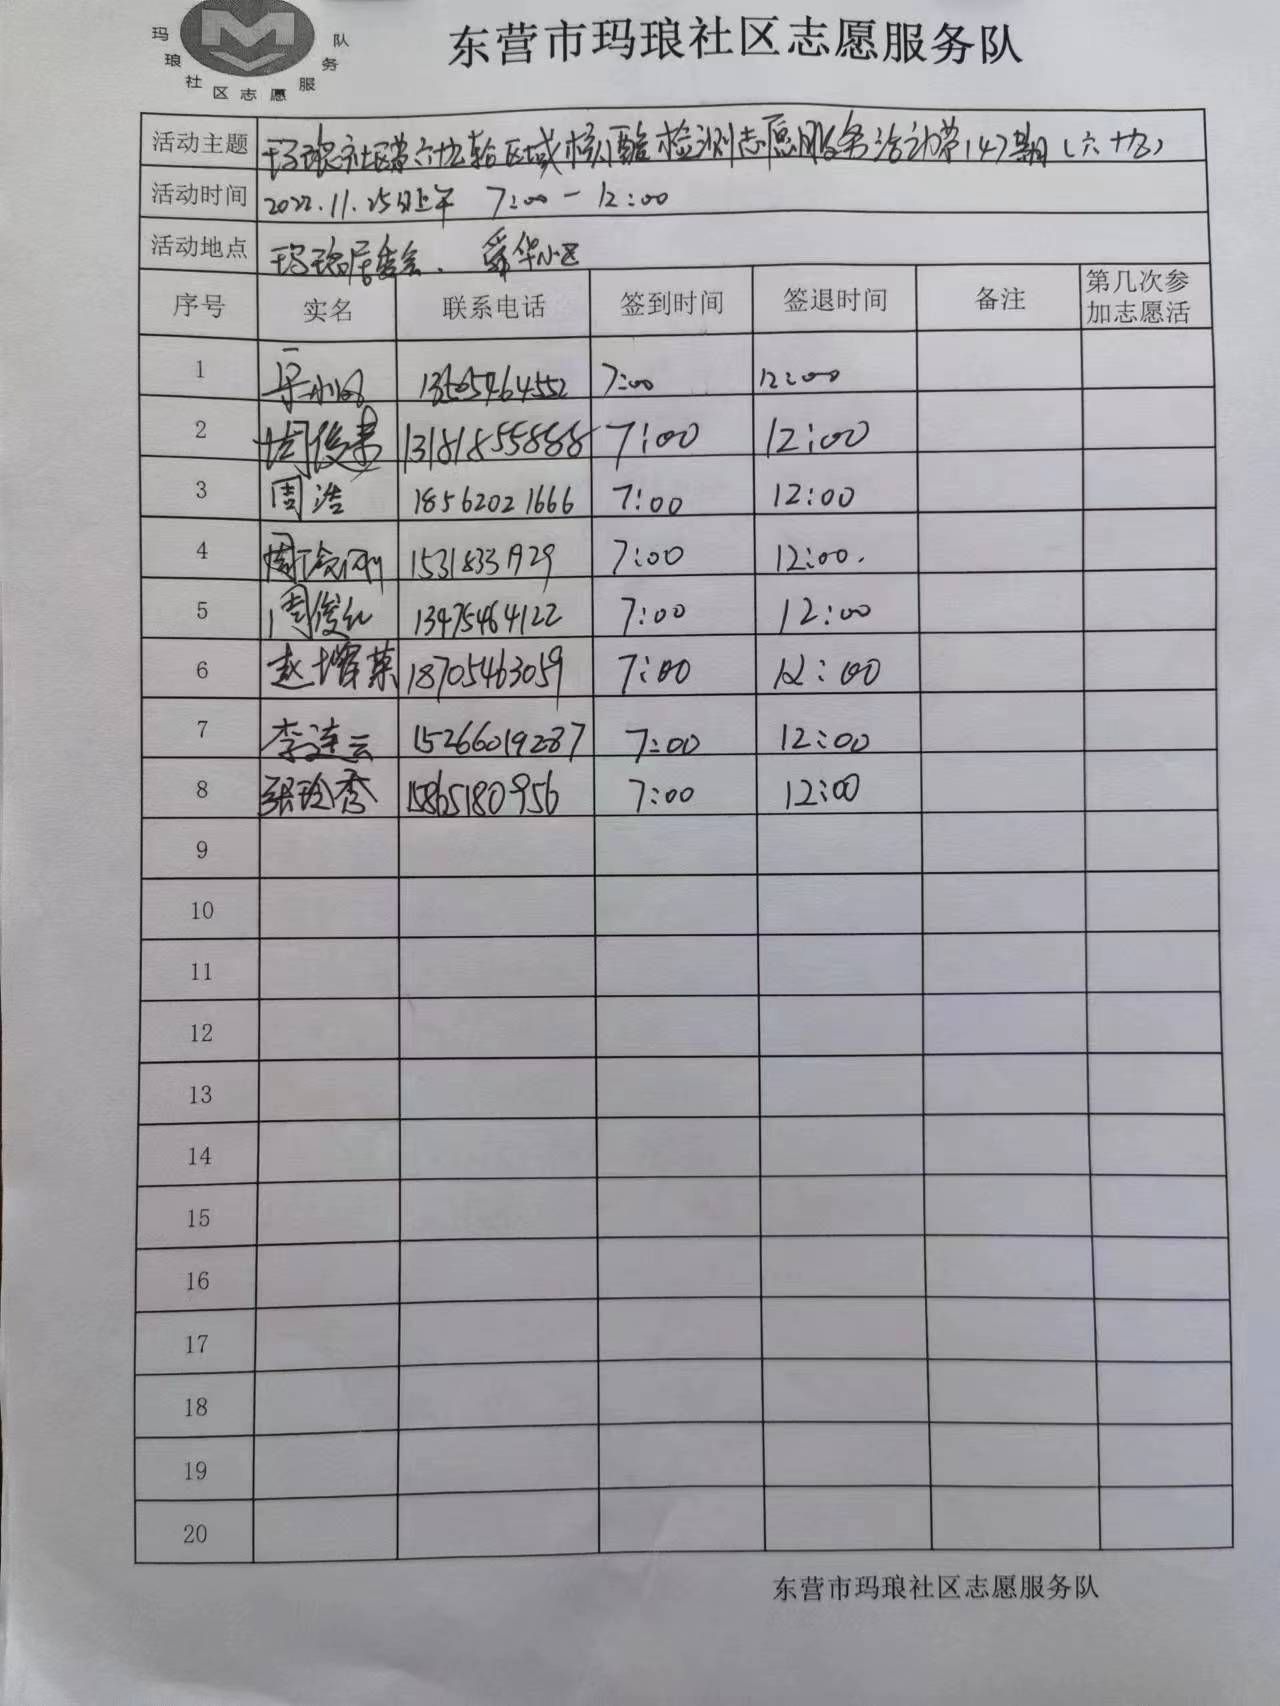 玛琅社区志愿服务队
东营市玛琅社区志愿服务队
活动主题 玛琅社区第六十五轮区域核酸检测志愿服务活动第147期(六十五)
活动时间 2022.11.25日上午 7:00-12:00
活动地点 玛琅居委会、舜华小区
序号 实名 联系电话 签到时间 签退时间 备注 第几次参
加志愿活
1 13505464552 7:00 12:00
2 周俊 13181855888 7:00 12:00
3 周浩 18562021666 7:00 12:00
4 周 15318331929 7:00 12:00.
5 周俊红 13475464122 7:00 12:00
6 赵增荣 18705463059 7:00 12:00
7 李连云 15266019287 7:00 12:00
8 张玲秀 15865180956 7:00 12:00
9
10
11
12
13
14
15
16
17
18
19
20
东营市玛琅社区志愿服务队